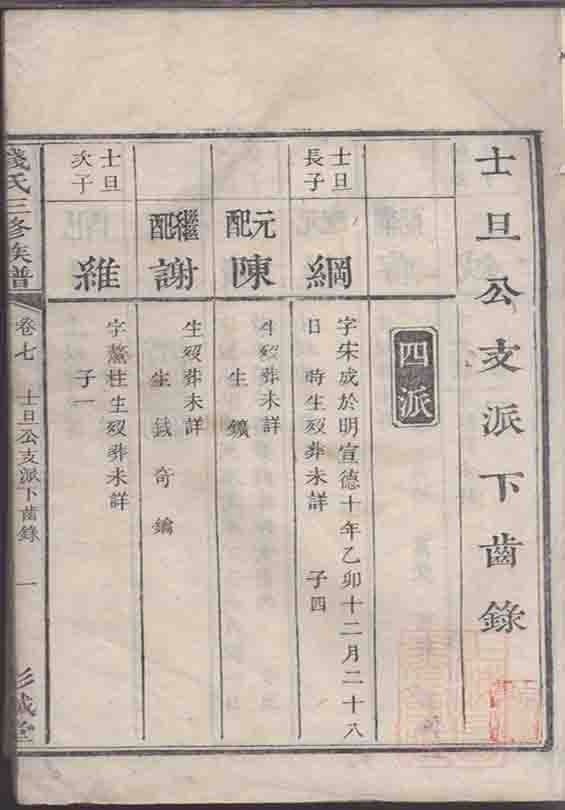 士旦公支派下齒錄
四派
士旦
長子
綱
字宋成於明宣德十年乙卯十二月二十八
日 時生歿葬未詳 子四
元配
陳
生歿葬未詳
生鑛
繼配
謝
生歿葬未詳
生鉞奇鑰
士旦
次子
維
字鰲柱生歿葬未詳
子一
錢氏三修族譜
卷七 士旦公支派下齒錄 一
彭城堂